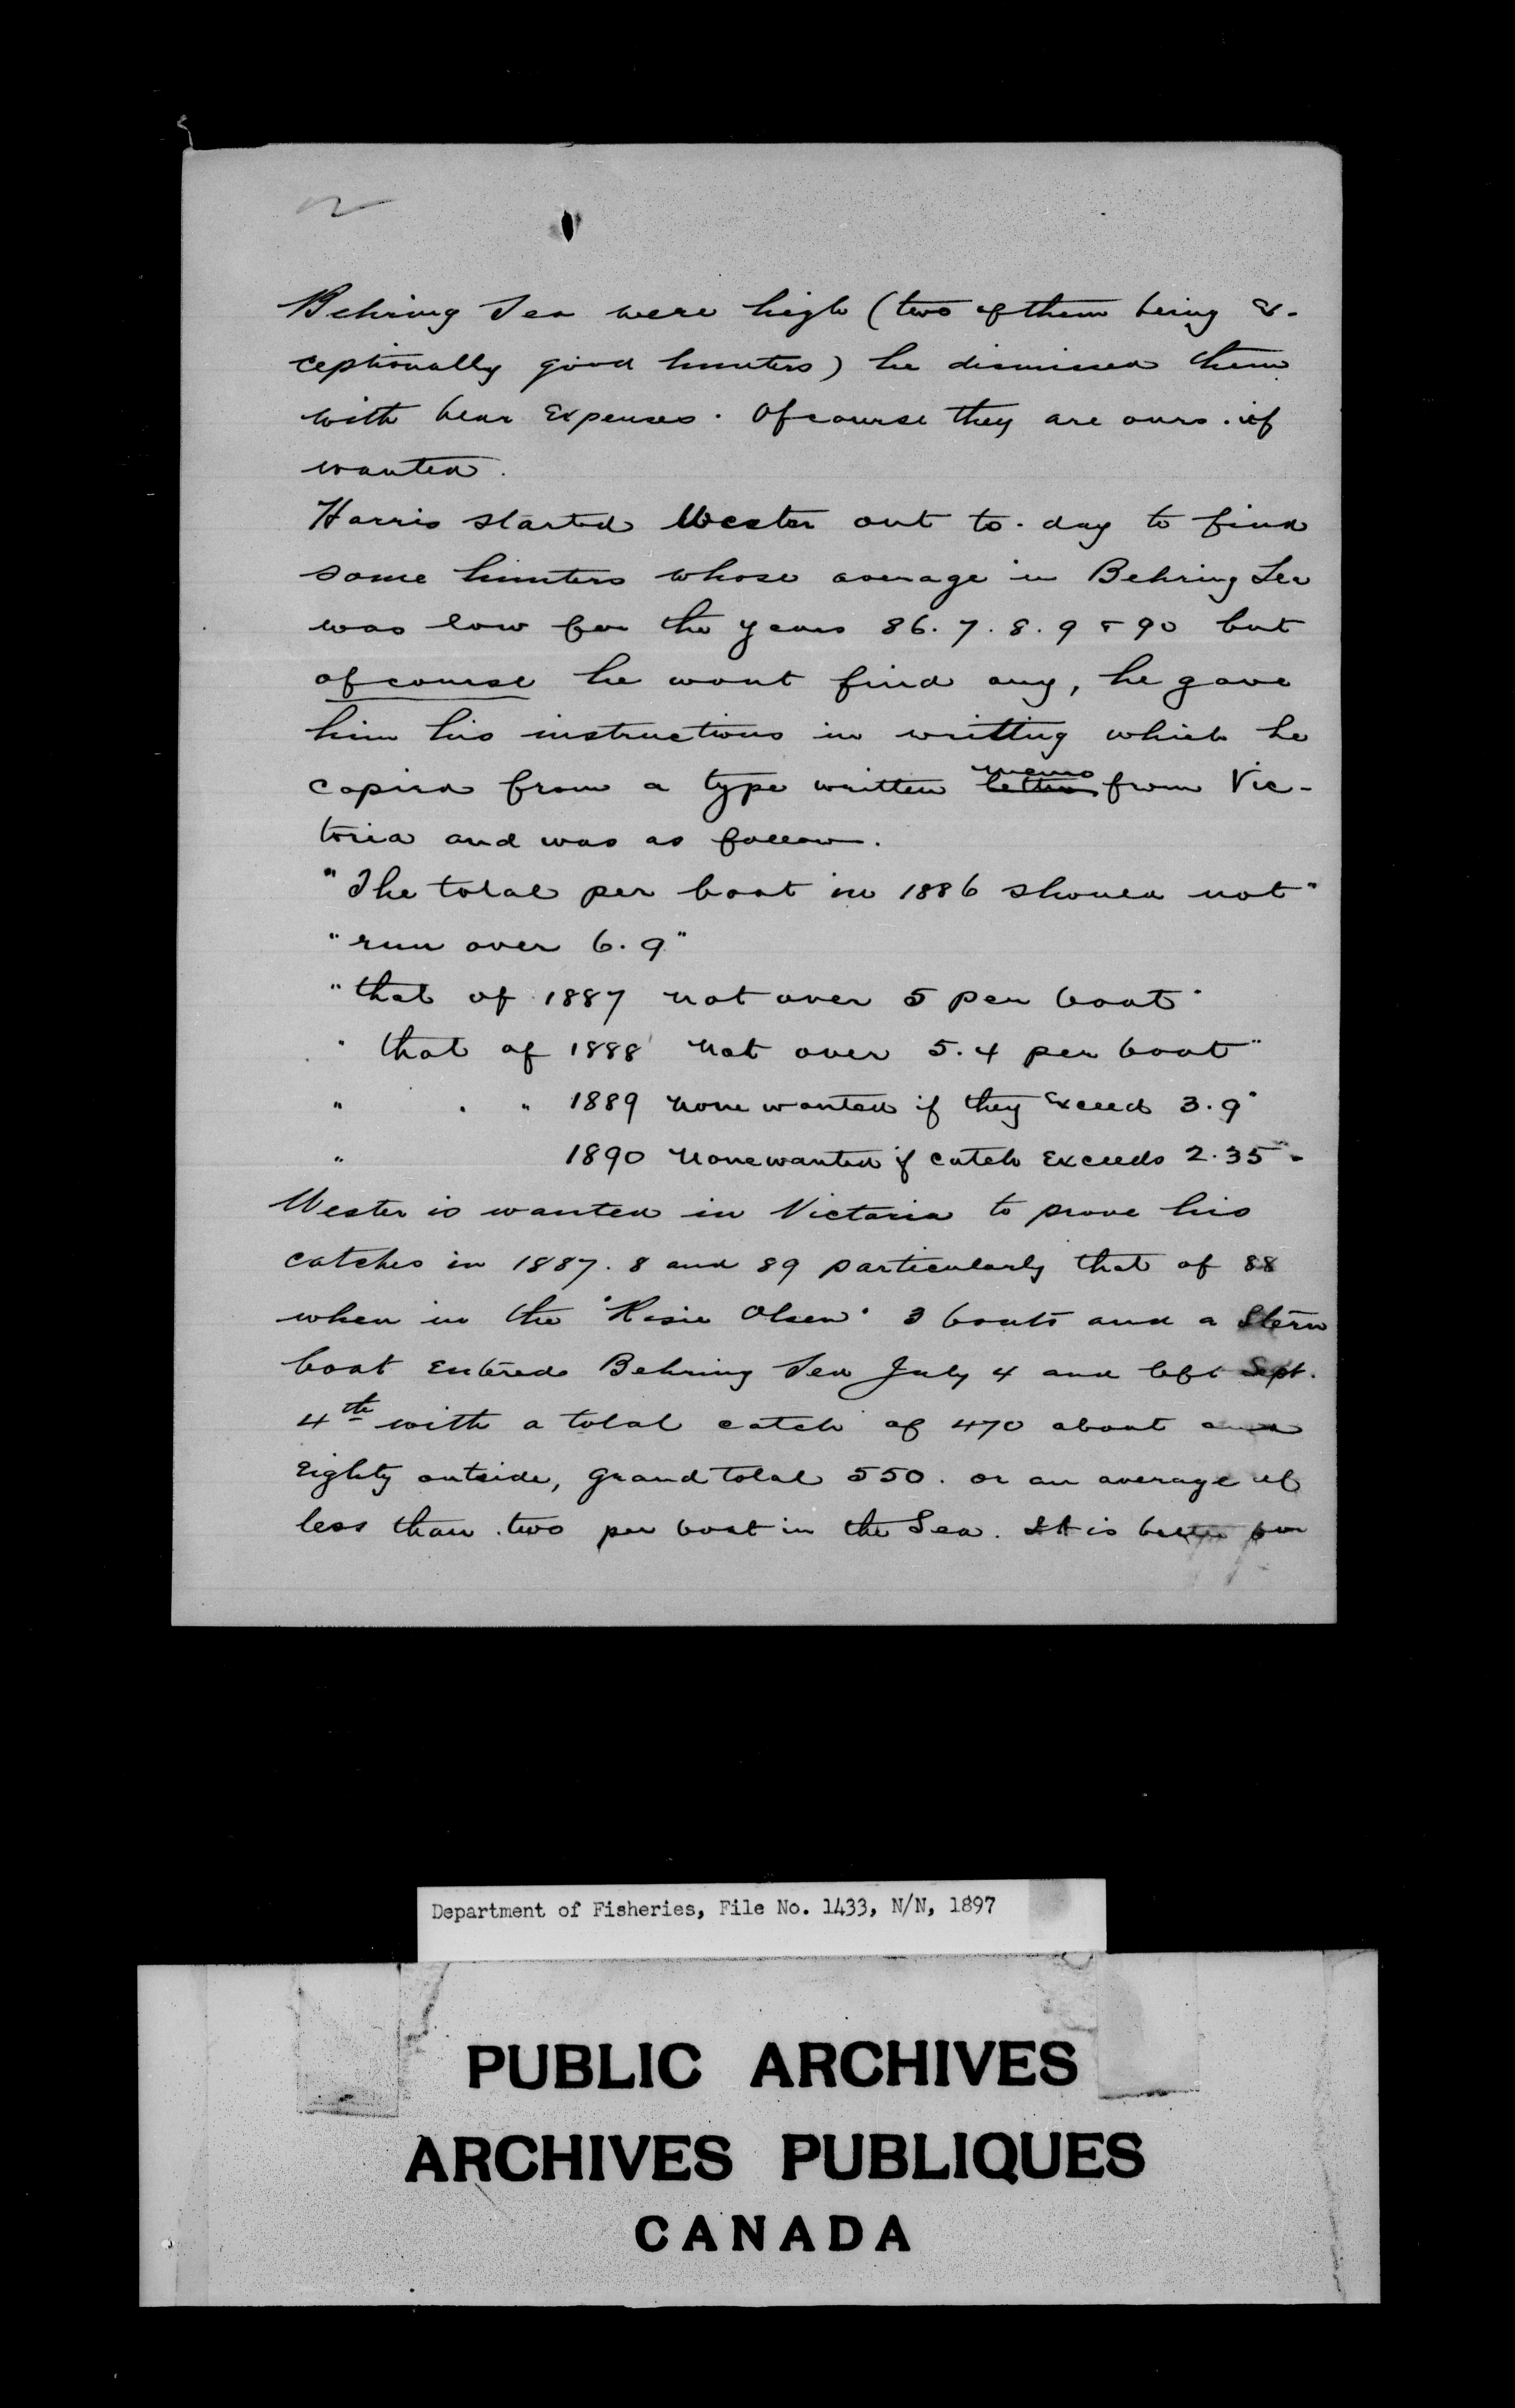 2
Behring Sea were high (two of them being ex-
ceptionally good hunters) he dismissed them
with bear expenses. Ofcourse they are ours. if
wanted.
Harris started Wester out to-day to find
some hunters whose average in Behring Sea
was low for the years 86. 7. 8. 9 & 90 but
ofcourse he wont find any, he gave
him his instructions in writting which he
memo
copied from a type written letter from Vic-
toria and was as follow.
"The total per boat in 1886 should not"
"run over 6.9"
"that of 1887 not over 5 per boat"
" that of 1888 not over 5.4 per boat"
" " " 1889 none wanted if they exceed 3.9"
" 1890 none wanted if catch exceeds 2.35"-
Wester is wanted in Victoria to prove his
catches in 1887. 8 and 89 particularly that of 88
when in the "Rosie Olsen" 3 boats and a Stern
boat entered Behring Sea July 4 and left Sept.
4th with a total catch of 470 about and
eighty outside, grand total 550. or an average of
less than two per boat in the Sea. It is better for
Department of Fisheries, File No. 1433, N/N, 1897
PUBLIC ARCHIVES
ARCHIVES PUBLIQUES
CANADA